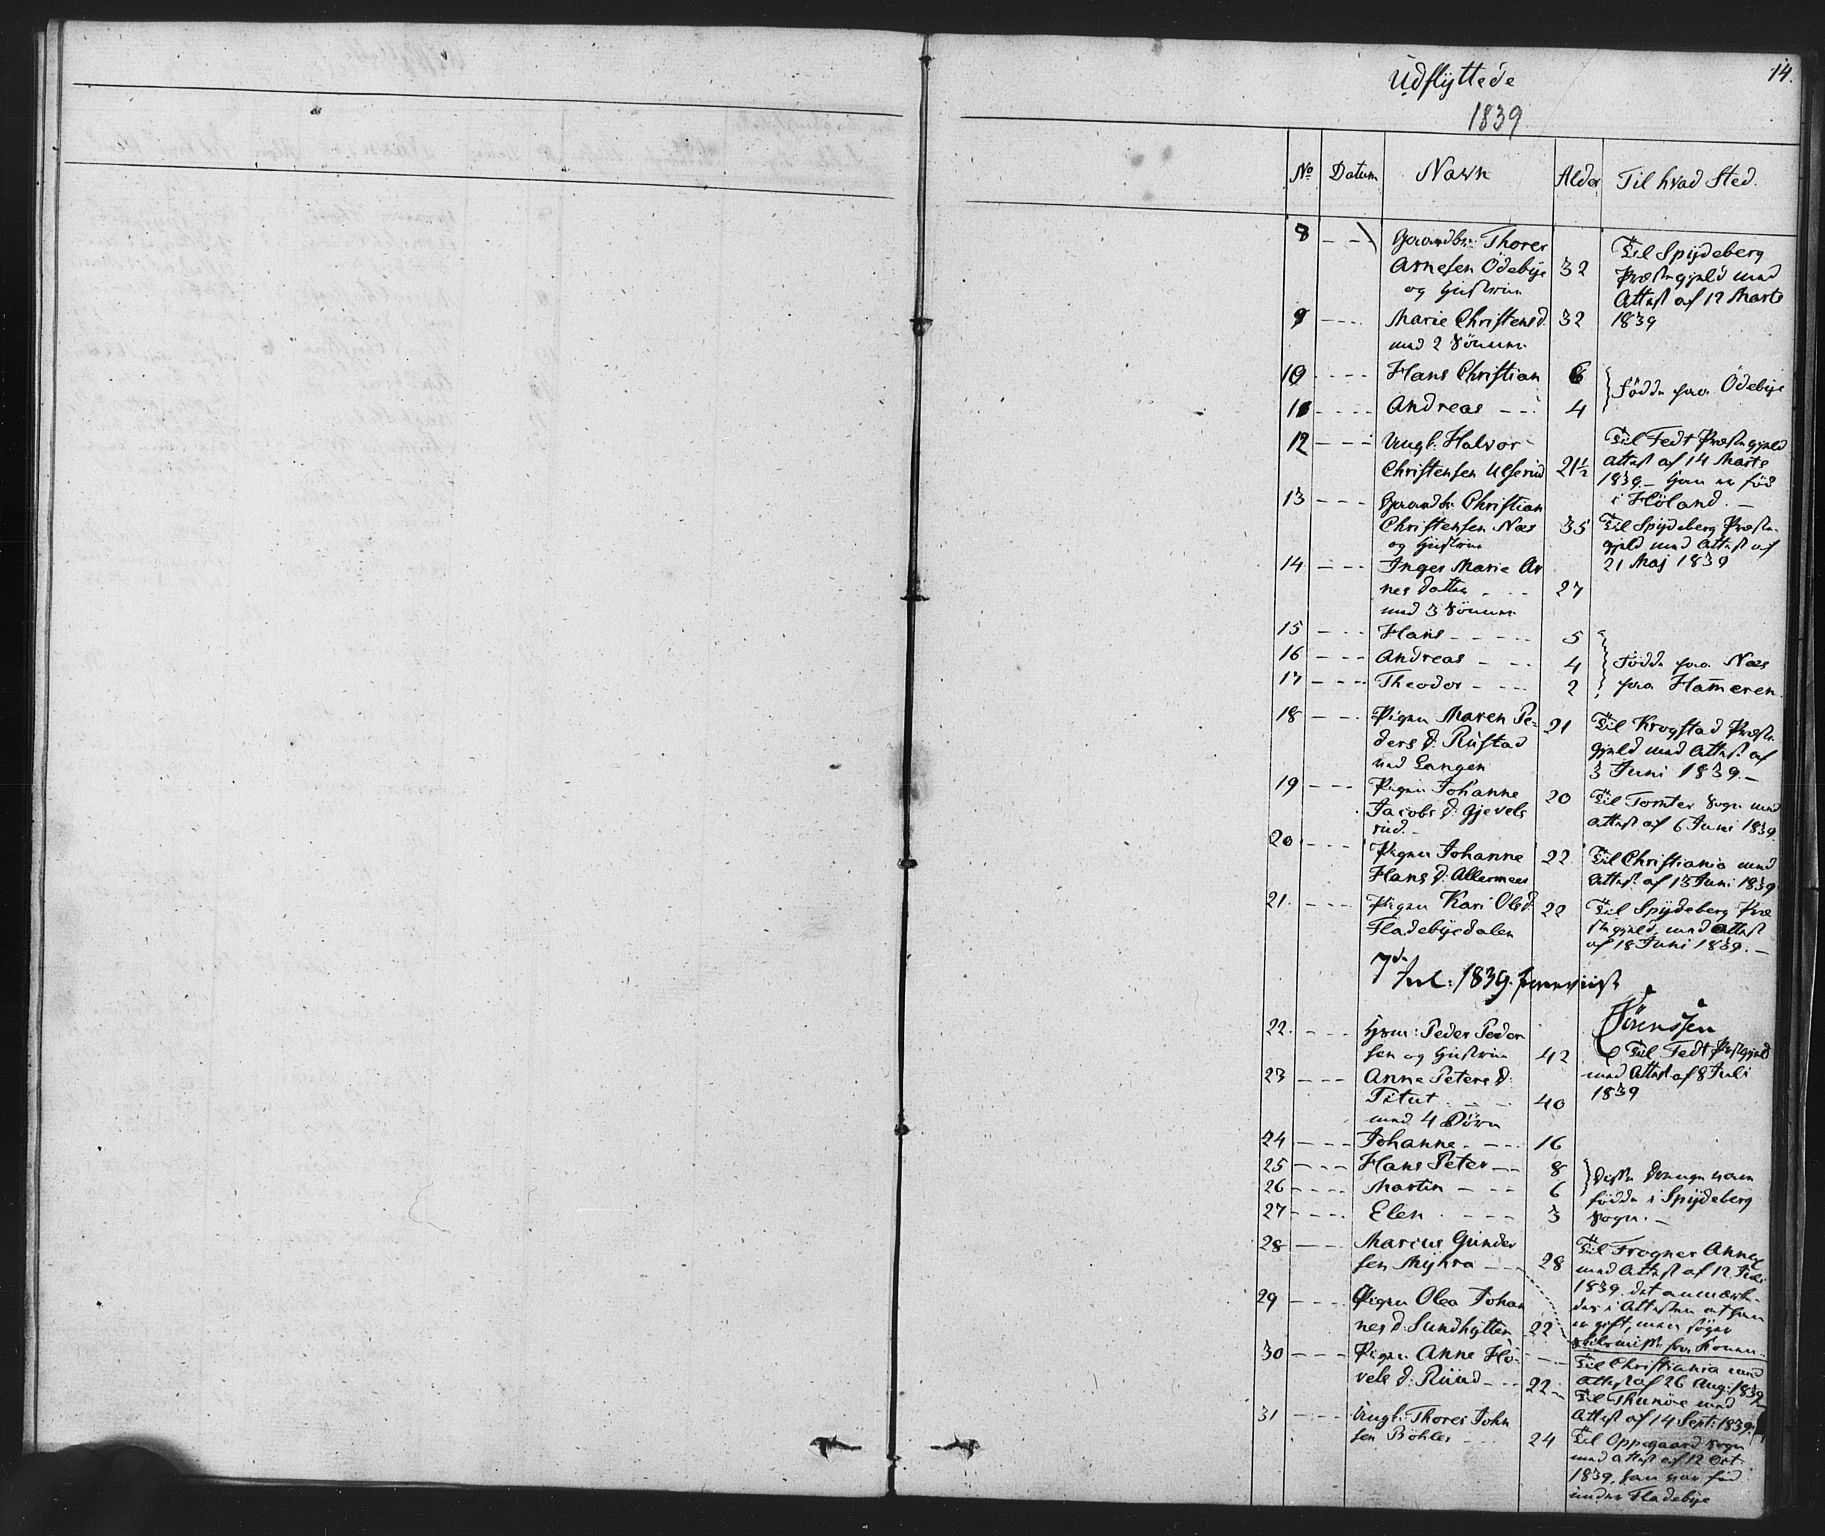 14.
Udflyttede
1839
No Datum Navn Alder Til hvad Sted.
8 Gaardbr: Thorer Til Spydeberg
Arnesen Ödebye 32 Præstegjeld med
og Hustrue Attest af 12 Marts
9 Marie Christensd. 32 1839
med 2 Sönner
10 Hans Christian 6 Födde paa Ödebye
11 Andreas 4
12 Ungk: Halvor Til Fedt Præstegjeld
Christensen Ulserud 21½ Attest af 14 Marts
1839. – Han er föd
i Höland. –
13 Gaardbr. Christian
Christensen Næs 35 Til Spydeberg Præste-
og Hustrue gjeld med Attest af
14 Inger Marie Ar 21 Maj 1839
nes datter 27
med 3 Sönner
15 Hans 5
16 Andreas 4 Födde paa Næs
17 Theodor 2 paa Hameren
18 Pigen Maren Pe- 21 Til Krogstad Præste
ders d: Rustad gjeld med Attest af
ved Langen 3 Juni 1839. –
19 Pigen Johanne 20 Til Tomter Sogn med
Jacobs d: Gjevels Attest af 6 Juni 1839
rud. –
20 Pigen Johanne 22 Til Christiania med
Hans d: Allermees Attest af 13 Juni 1839
21. Pigen Kari Olsd. 22 Til Spydeberg Præ
Fladebyedalen stegjeld, med Attest
af 18 Juni 1839. –
7de Jul: 1839.
Sörenssen
22. Hsm: Peder Peder Til Fedt Præstgjeld
sen og Hustrue 42 med Attest af 8 Juli
23 Anne Peters d: 1839
Titut 40
med 4 Börn
24 Johanne 16
25 Hans Peter 8 Disse Drenge ere
26 Martin 6 födde i Spydeberg
27 Elen 3 Sogn. –
28 Marius Gunder Til Frogner Annex
sen Myhra 28 med Attest af 12 Juli
1839. det anmærk-
des i Attesten at han
er gift, men söger
Skilsmisse fra Konen.
29 Pigen Olea Johan
nes d: Sundhytten 22
30 Pigen Anne Hö- Til Christiania med
vels d: Ruud 22 Attest af 26 Aug: 1839
Til Thunöe med
31 Ungk: Thorer John Attest af 14 Sept: 1839.
sen Böhler 24 Til Oppegaard Sogn
med Attest af 12 Oct:
1839, han var föd
under Fladebye